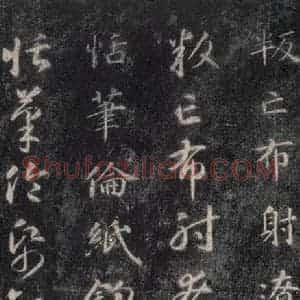 叛亡布射遼
叛亡布射遼
恬筆倫紙鈞
恬筆倫紙